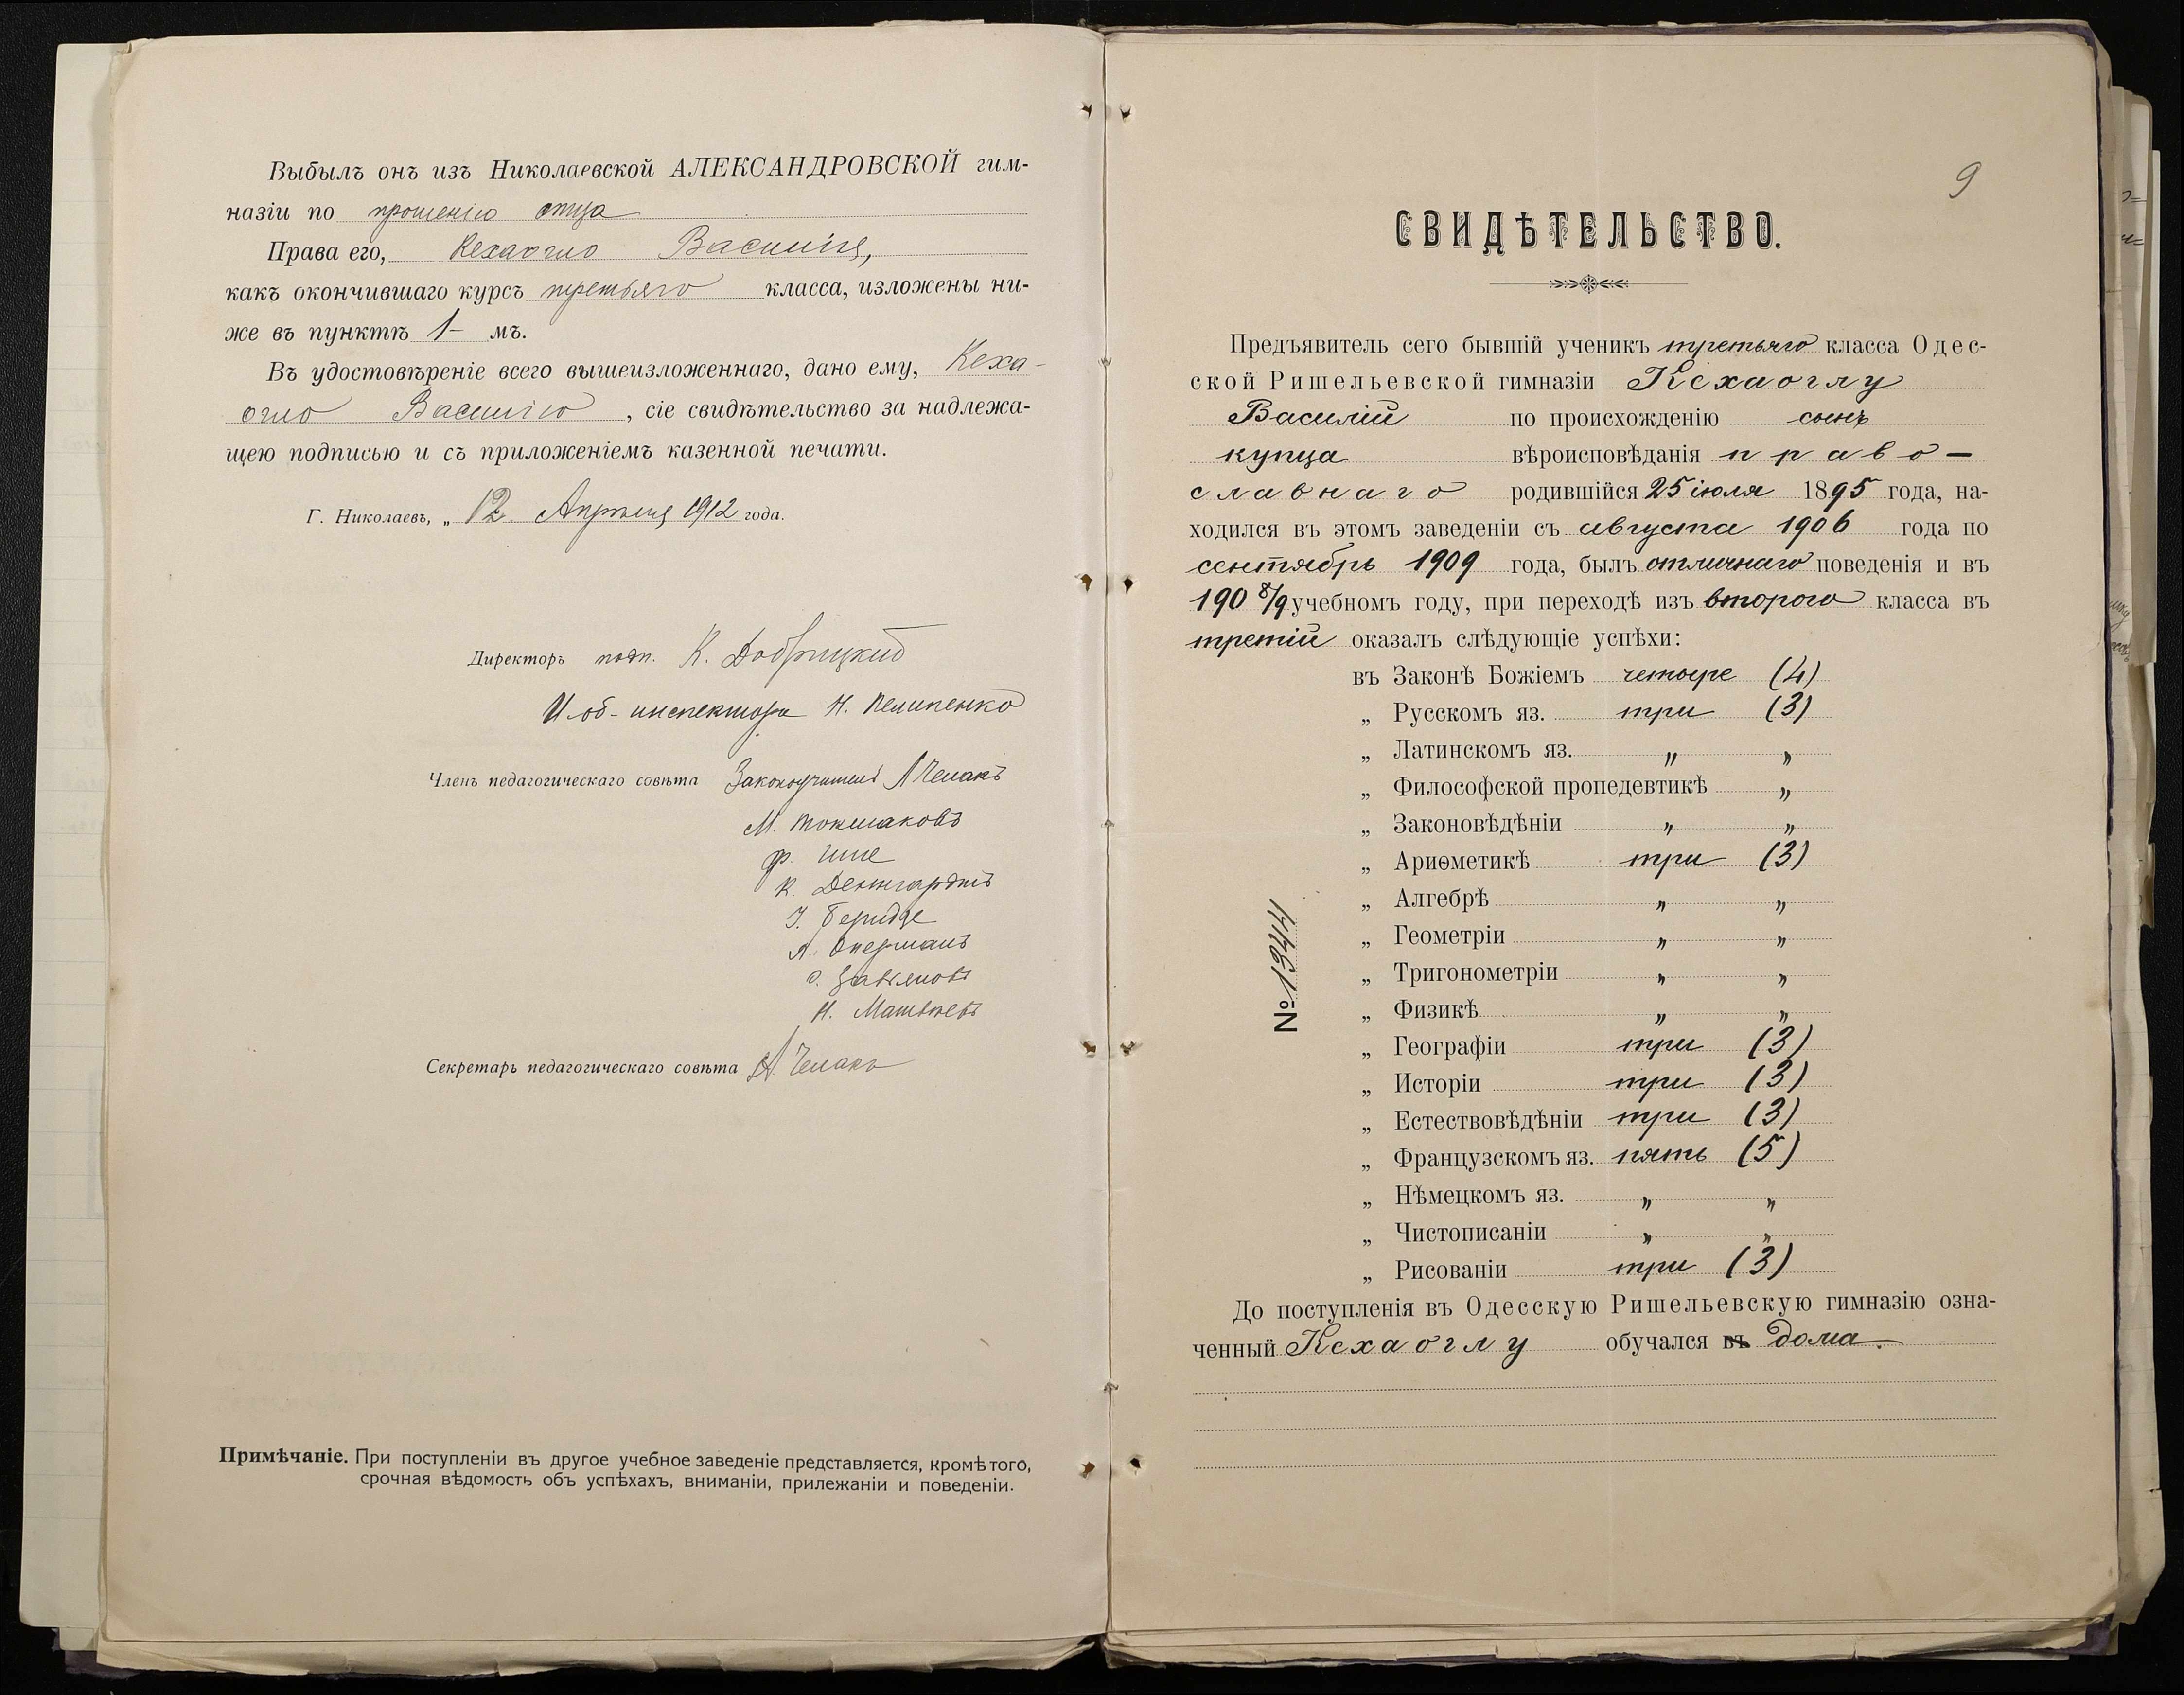 Выбылъ онъ изъ Николаевской АЛЕКСАНДРОВСКОЙ гим-
назіи по прошенію отца
Права его, Кехаогло Василія,
какъ окончившаго курсъ третьяго класса, изложены ни-
же въ пунктѣ 1- мъ.
Въ удостовѣреніе всего вышеизложеннаго, дано ему, Кеха-
огло Василію, сіе свидѣтельство за надлежа-
щею подписью и съ приложеніемъ казенной печати.
Г. Николаевъ, „ 12 Апрѣля 1912 года.
Директоръ подп. К. Добрицкій
И об- инспектора Н. Пелипенко
Членъ педагогическаго совѣта Законоучитель Л Челакъ
М. Токмаковъ
Ф.
К. Денгардтъ
І. Беридзе
Л. Оперманъ
Завьяловъ
Н. Матвѣевъ
Секретарь педагогическаго совѣта Челакъ
Примѣчаніе. При поступленіи въ другое учебное заведеніе представляется, кромѣ того,
срочная вѣдомость объ успѣхахъ, вниманіи, прилежаніи и поведеніи.
9
СВИДѢТЕЛЬСТВО.
Предъявитель сего бывшій ученикъ третьяго класса Одес-
ской Ришельевской гимназіи Кехаоглу
Василій по происхожденію сынъ
купца вѣроисповѣданія право-
славнаго родившійся 25 іюля 1895 года, на-
ходился въ этомъ заведеніи съ августа 1906 года по
сентябрь 1909 года, былъ отличнаго поведенія и въ
190 8/9 учебномъ году, при переходѣ изъ второго класса въ
третій оказалъ слѣдующіе успѣхи:
въ Законѣ Божіемъ четыре (4)
„ Русскомъ яз. три (3)
„ Латинскомъ яз. „ „
„ Философской пропедевтикѣ „
„ Законовѣдѣніи „ „
„ Ариѳметикѣ три (3)
„ Алгебрѣ „ „
„ Геометріи „ „
„ Тригонометріи „ „
„ Физикѣ „ „
„ Географіи три (3)
„ Исторіи три (3)
„ Естествовѣдѣніи три (3)
„ Французскомъ яз. пять (5)
„ Нѣмецкомъ яз. „ „
„ Чистописаніи „ „
„ Рисованіи три (3)
№ 1344
До поступленія въ Одесскую Ришельевскую гимназію озна-
ченный Кехаоглу обучался въ дома.